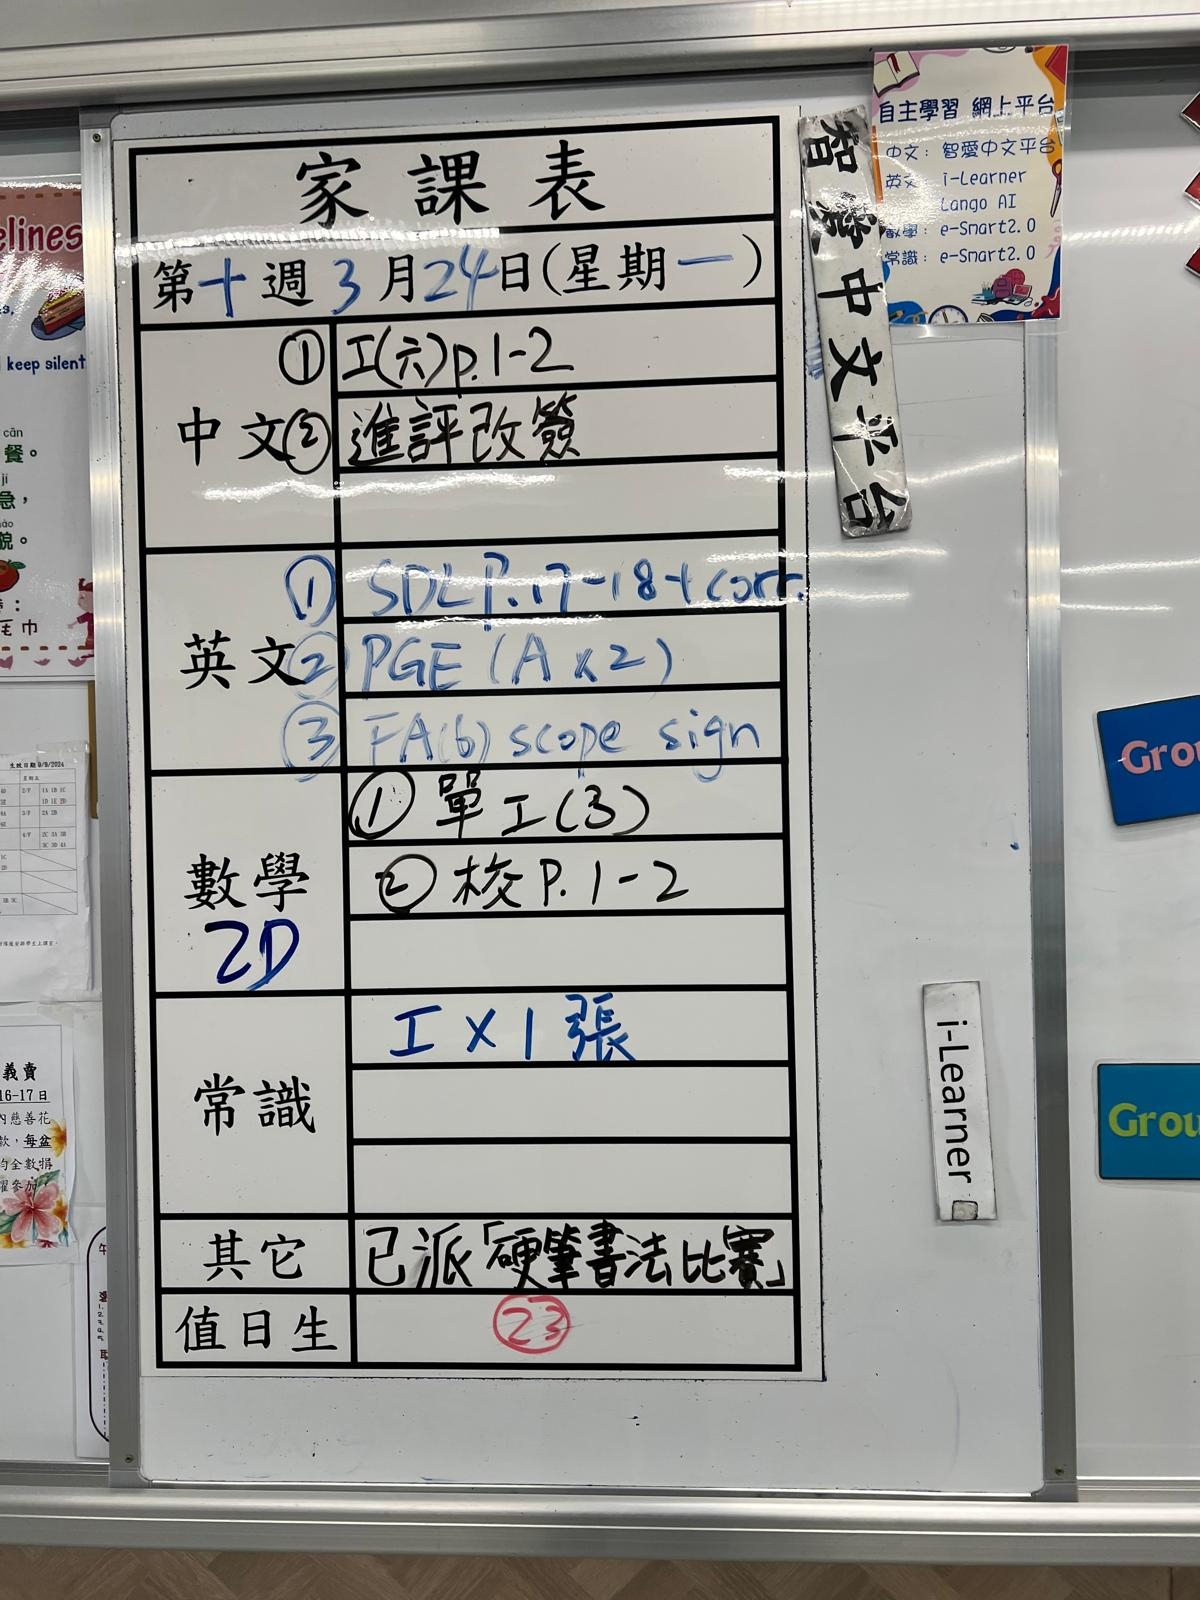 家課表
第十週3月24日(星期一)
中文
① 工(六)p.1-2
② 進評改簽
英文
① SDL P.17-18+corr.
② PGE (A x2)
③ FA(6) scope sign
數學
2D
① 單工(3)
② 校P.1-2
常識
工 x 1 張
其它
已派「硬筆書法比賽」
值日生
23
智愛中文平台
自主學習 網上平台
中文: 智愛中文平台
英文: i-Learner
Lango AI
數學: e-Smart2.0
常識: e-Smart2.0
i-Learner
Grou
Grou
elines
keep silent.
cān
餐。
jí
急，
貌。
毛巾
生效日期 9/9/2024
星期五
2/F 1A 1B 1C
1D 1E 2D
3/F 2A 2B
4/F 2C 3A 3B
3C 3D 4A
義賣
16-17日
內慈善花
款，每盆
均全數捐